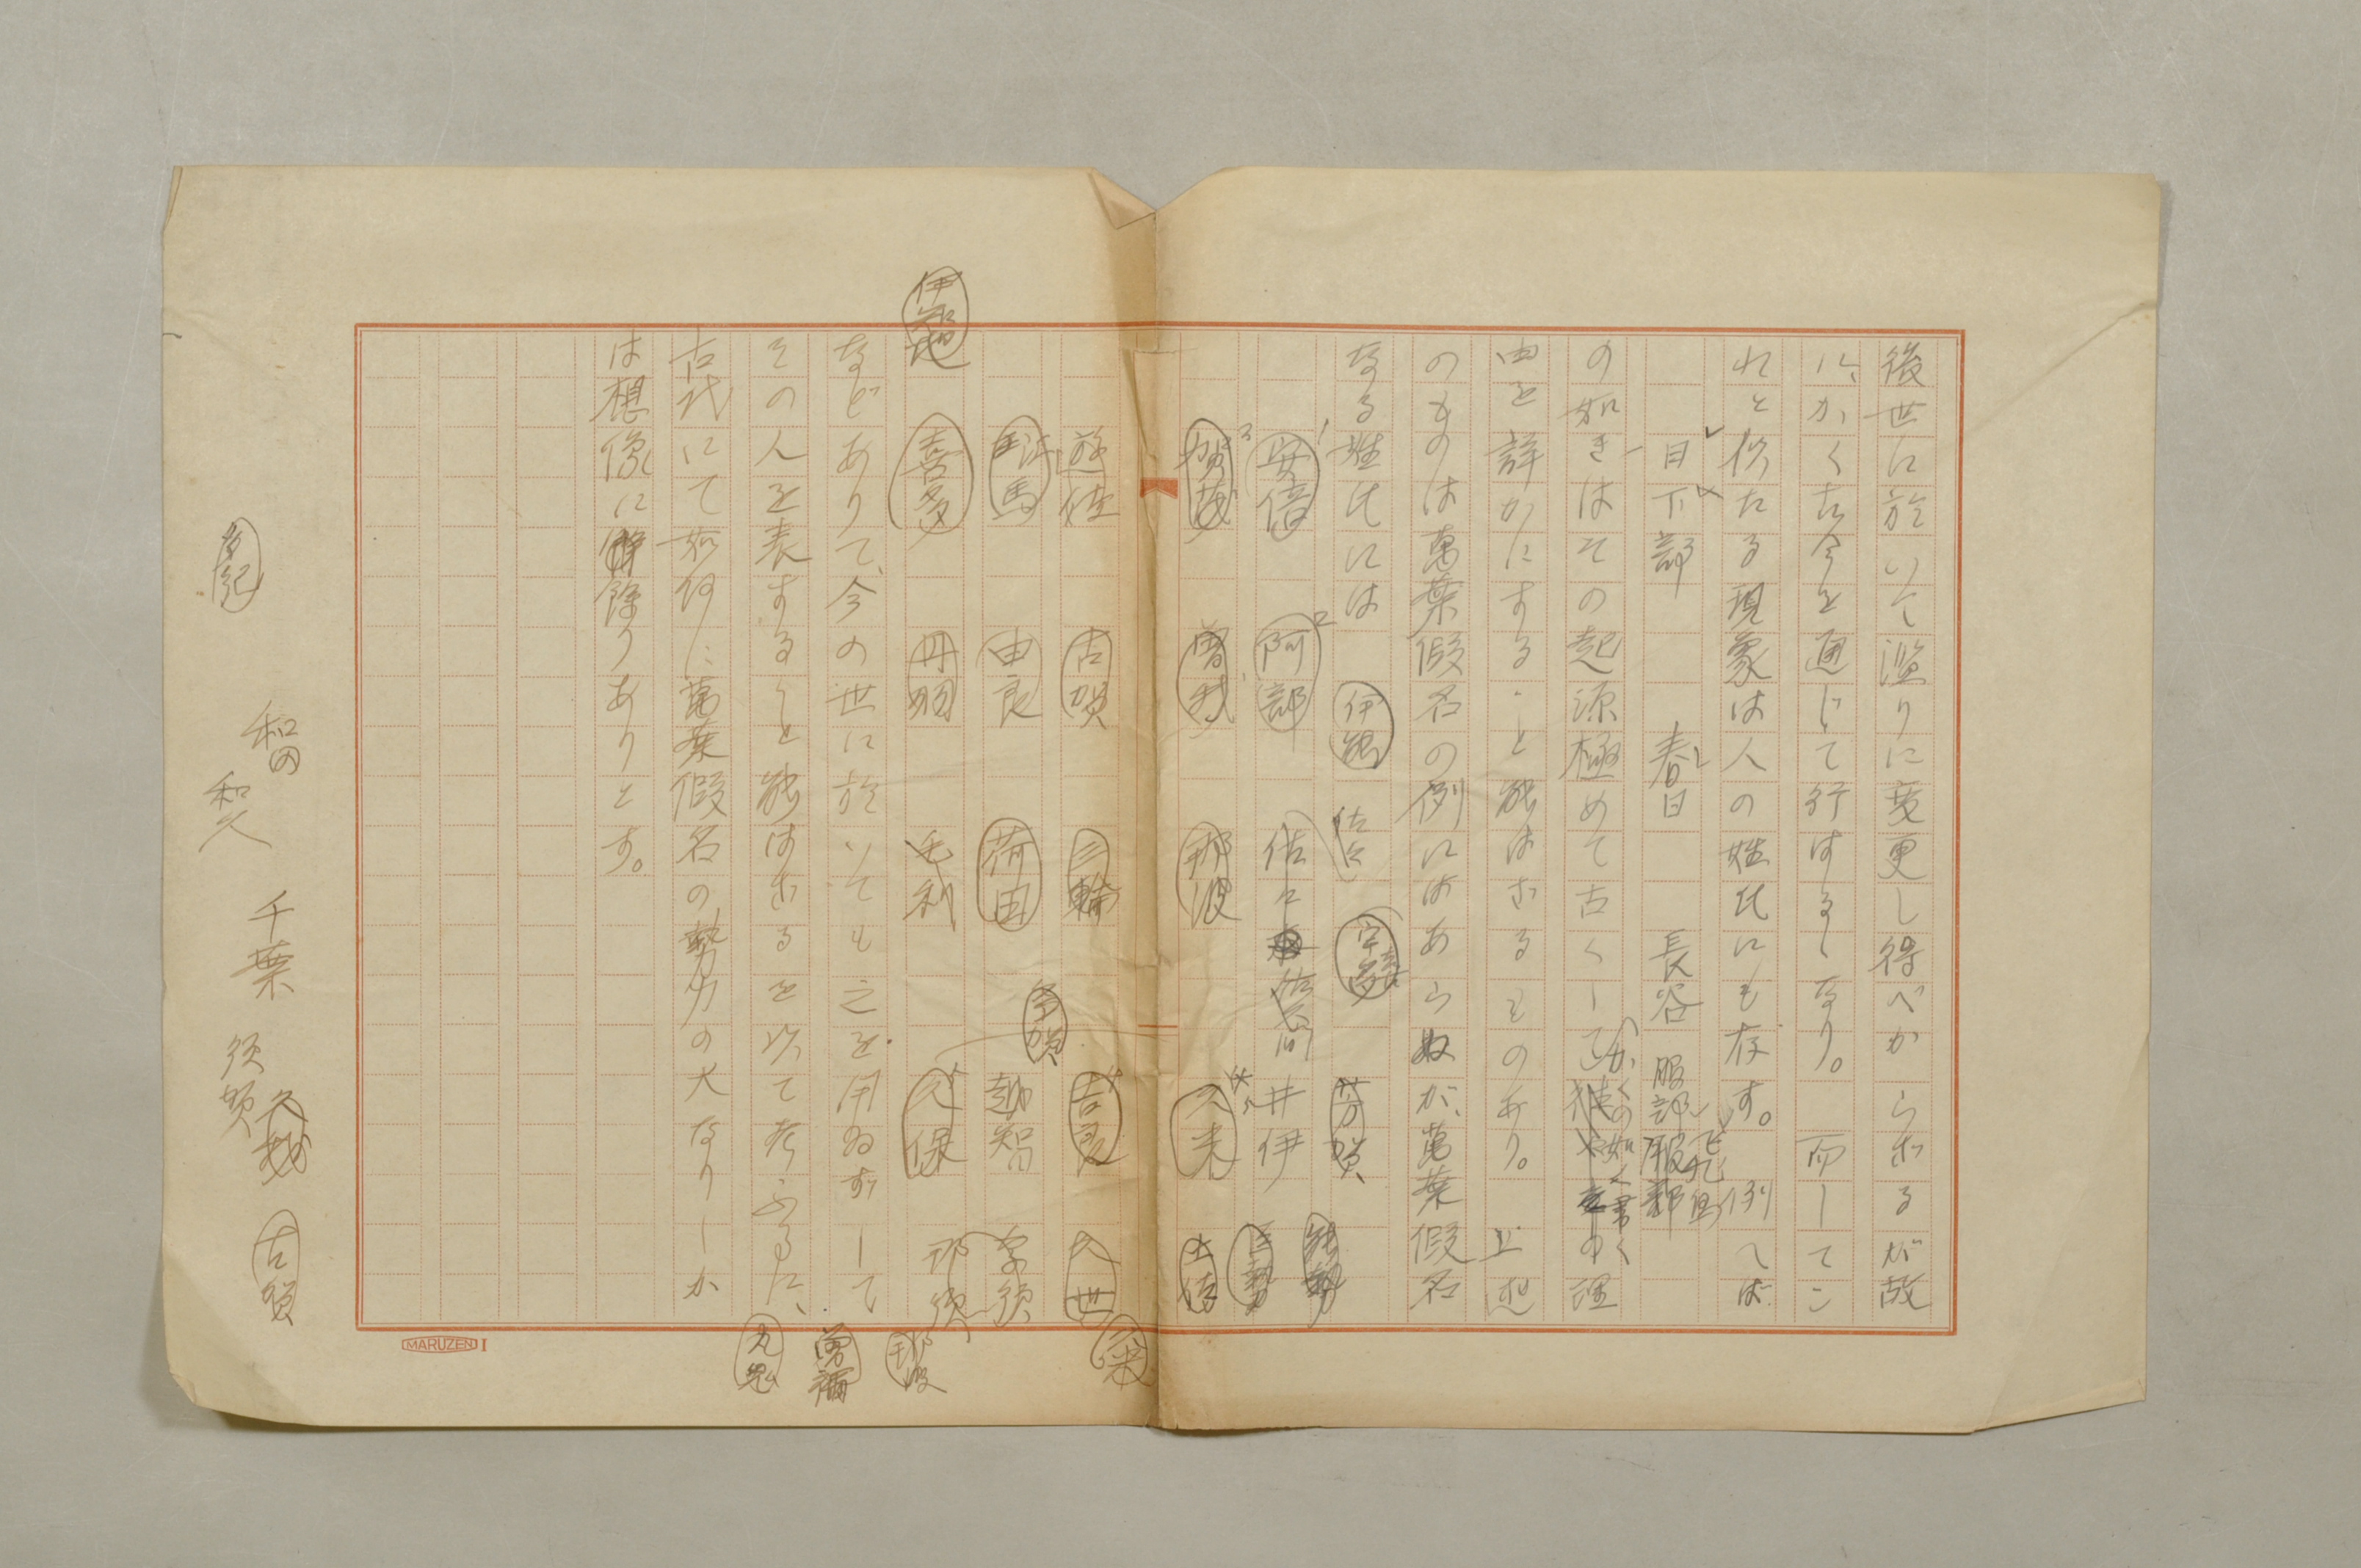 後世に於いて濫りに変更し得べからざるが故
に、かく古今を通じて行はるゝなり。而してこ
れと似たる現象は人の姓氏にも存す。例へば
日下部 春日 長谷 服部 服部 飛鳥
の如きはその起源極めて古くして かくの如く書く の理
由を詳かにすること能はざるものあり。上述
のものは萬葉假名の例にはあらぬが、萬葉假名
なる姓氏には
伊能 佐々 宇多 芳賀 能勢
安倍 阿部 佐々 井伊 巨勢
加茂 曽我 那波 久米 土佐
遊佐 古賀 三輪 吉良 久世
有馬 由良 荷田 越智 那須
多賀
喜多 丹羽 毛利 久保 那須
伊地知
などありて、今の世に於いても之を用ゐずして
その人を表すること能はざるを以て考ふるに、
古代にて如何に萬葉假名の勢力の大なりしか
は想像に餘りありとす。
那波
和田
和久
千葉
須賀
古賀
MARUZEN I